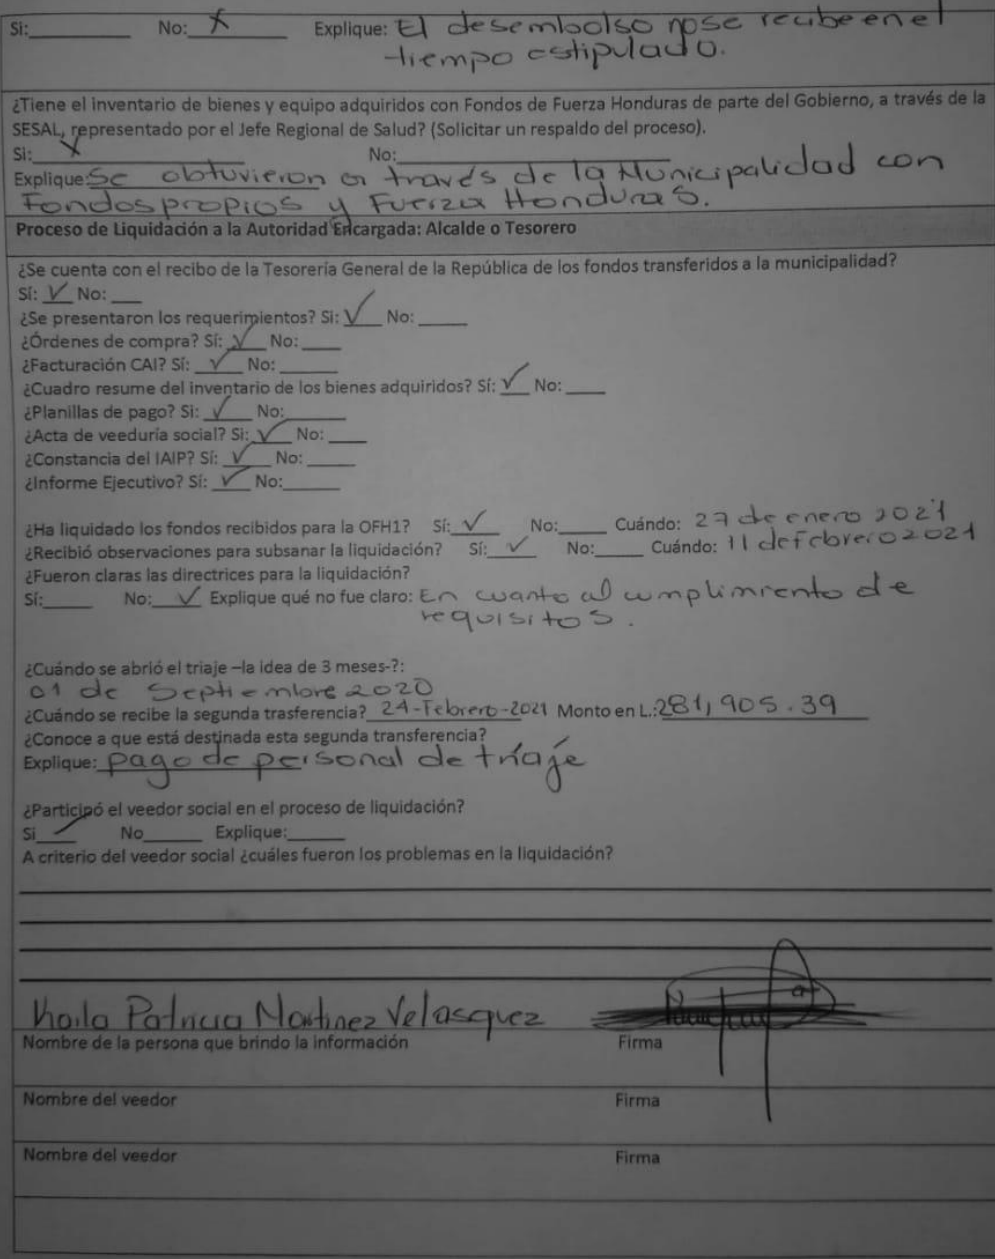 Si:__________ No: X Explique: El desembolso no se recibe en el
tiempo estipulado.
¿Tiene el inventario de bienes y equipo adquiridos con Fondos de Fuerza Honduras de parte del Gobierno, a través de la
SESAL, representado por el Jefe Regional de Salud? (Solicitar un respaldo del proceso).
Si: X No:__________
Explique: Se obtuvieron a través de la Municipalidad con
Fondos propios y Fuerza Honduras.
Proceso de Liquidación a la Autoridad Encargada: Alcalde o Tesorero
¿Se cuenta con el recibo de la Tesorería General de la República de los fondos transferidos a la municipalidad?
Sí: ✓ No: ___
¿Se presentaron los requerimientos? Si: ✓ No: ____
¿Órdenes de compra? Sí: ✓ No: ____
¿Facturación CAI? Sí: ✓ No: ____
¿Cuadro resume del inventario de los bienes adquiridos? Sí: ✓ No: ____
¿Planillas de pago? Si: ✓ No:____
¿Acta de veeduría social? Si: ✓ No: ____
¿Constancia del IAIP? Sí: ✓ No: ____
¿Informe Ejecutivo? Sí: ✓ No:____
¿Ha liquidado los fondos recibidos para la OFH1? Sí: ✓ No:____ Cuándo: 27 de enero 2021
¿Recibió observaciones para subsanar la liquidación? Sí: ✓ No:____ Cuándo: 11 de Febrero 2021
¿Fueron claras las directrices para la liquidación?
Sí:____ No: ✓ Explique qué no fue claro: En cuanto al cumplimiento de
requisitos.
¿Cuándo se abrió el triaje –la idea de 3 meses-?:
01 de Septiembre 2020
¿Cuándo se recibe la segunda trasferencia? 24-Febrero-2021 Monto en L.: 281,905.39
¿Conoce a que está destinada esta segunda transferencia?
Explique: pago de personal de triaje
¿Participó el veedor social en el proceso de liquidación?
Si ✓ No____ Explique:____
A criterio del veedor social ¿cuáles fueron los problemas en la liquidación?
Patricia Martinez Velasquez
Nombre de la persona que brindo la información Firma
Nombre del veedor Firma
Nombre del veedor Firma